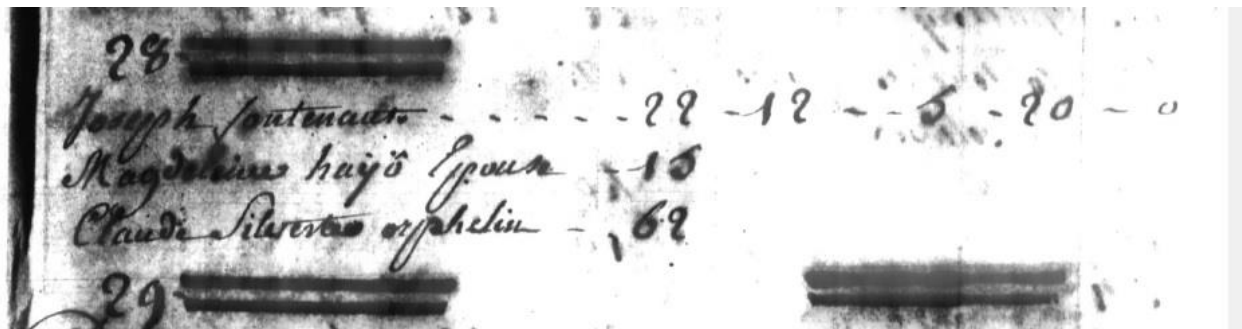 28
Joseph fontenaut - - - - - - 22 - 12 - - 5 - 20 - 0
Magdeleine haijô Epouse - 15
Claude Silvestre orphelin - 62
29